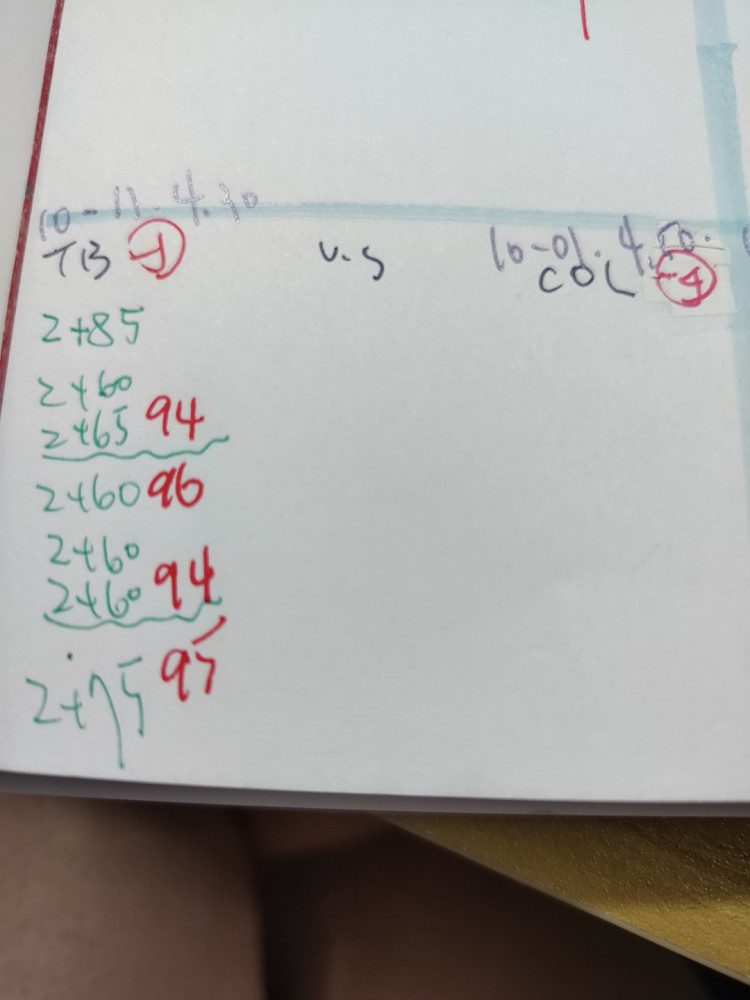 10-11. 4.30
10-01. 4.50.
TB -1 v.s COL -4
2+85
2+60
2+65 94
2+60 96
2+60
2+60 94
2+75 95